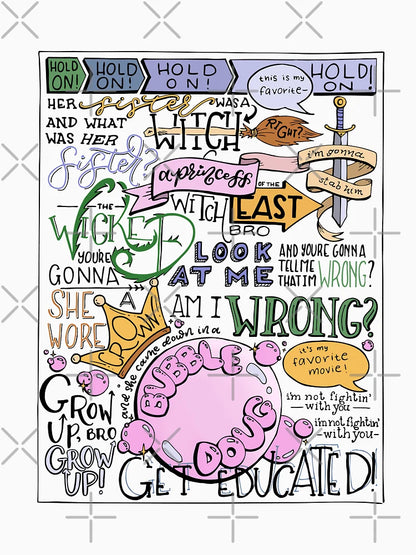 HOLD ON! HOLD ON! HOLD ON! HOLD ON!
this is my favorite-
HER sister WAS A
WITCH, RIGHT?
AND WHAT
WAS HER
Sister?
a princess
i'm gonna
stab him
THE
WICKED
WITCH OF THE EAST
BRO
YOU'RE
GONNA
LOOK
AT ME
AND YOU'RE GONNA
TELL ME
THAT IM WRONG?
AM I WRONG?
SHE
WORE
A
CROWN
and she came down in a
BUBBLE
DOUG
it's my
favorite
movie!
GROW
UP, BRO
GROW
UP!
i'm not fightin'
-with you-
i'm not fightin'
-with you-
GET EDUCATED!